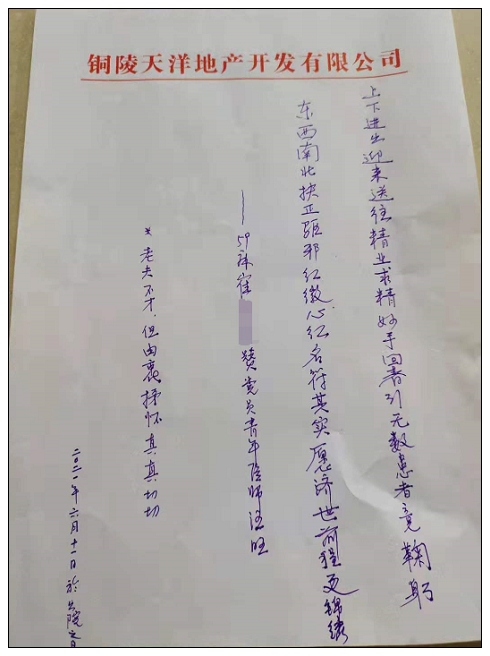 铜陵天洋地产开发有限公司
上下进出迎来送往精业求精妙手回春引无数患者竞鞠躬
东西南北扶正驱邪红徽心红名符其实愿济世前程更锦绣
——59床崔 赞党员青年医师汪旺
*老夫不才，但由衷抒怀真真切切
二〇二一年六月十一日於出院之日